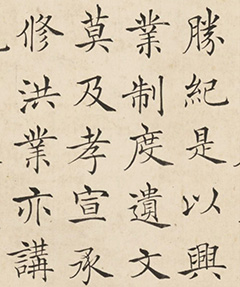 勝紀是以興
業制度遺文
莫及孝宣承
修洪業亦講